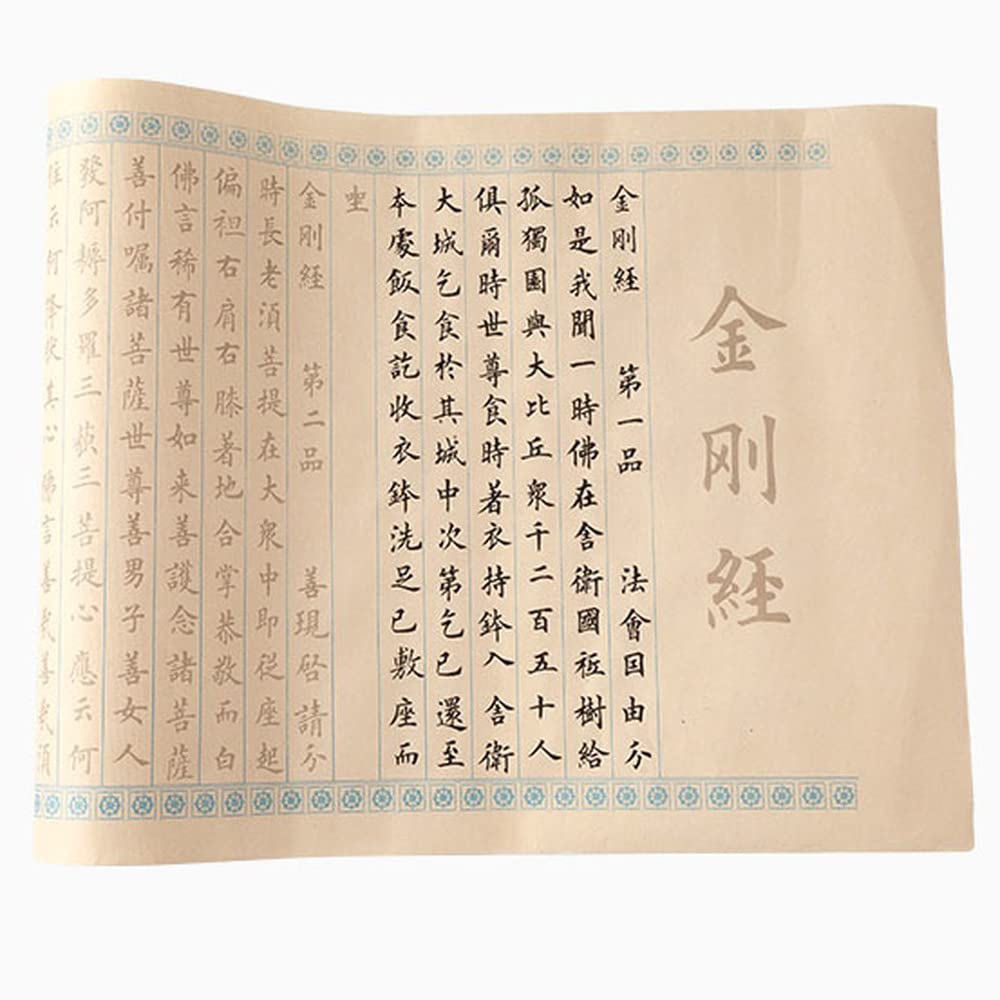 金刚経
金刚経 第一品 法會囙由分
如是我聞一時佛在舍衛國祗樹給
孤獨園與大比丘衆千二百五十人
俱爾時世尊食時著衣持鉢入舍衛
大城乞食於其城中次第乞已還至
本處飯食訖收衣鉢洗足已敷座而
坐
金刚経 第二品 善現啓請分
時長老湏菩提在大衆中即從座起
偏袒右肩右膝著地合掌恭敬而白
佛言稀有世尊如来善護念諸菩薩
善付囑諸菩薩世尊善男子善女人
發阿耨多羅三藐三菩提心應云何
住云何降伏其心佛言善哉善哉須